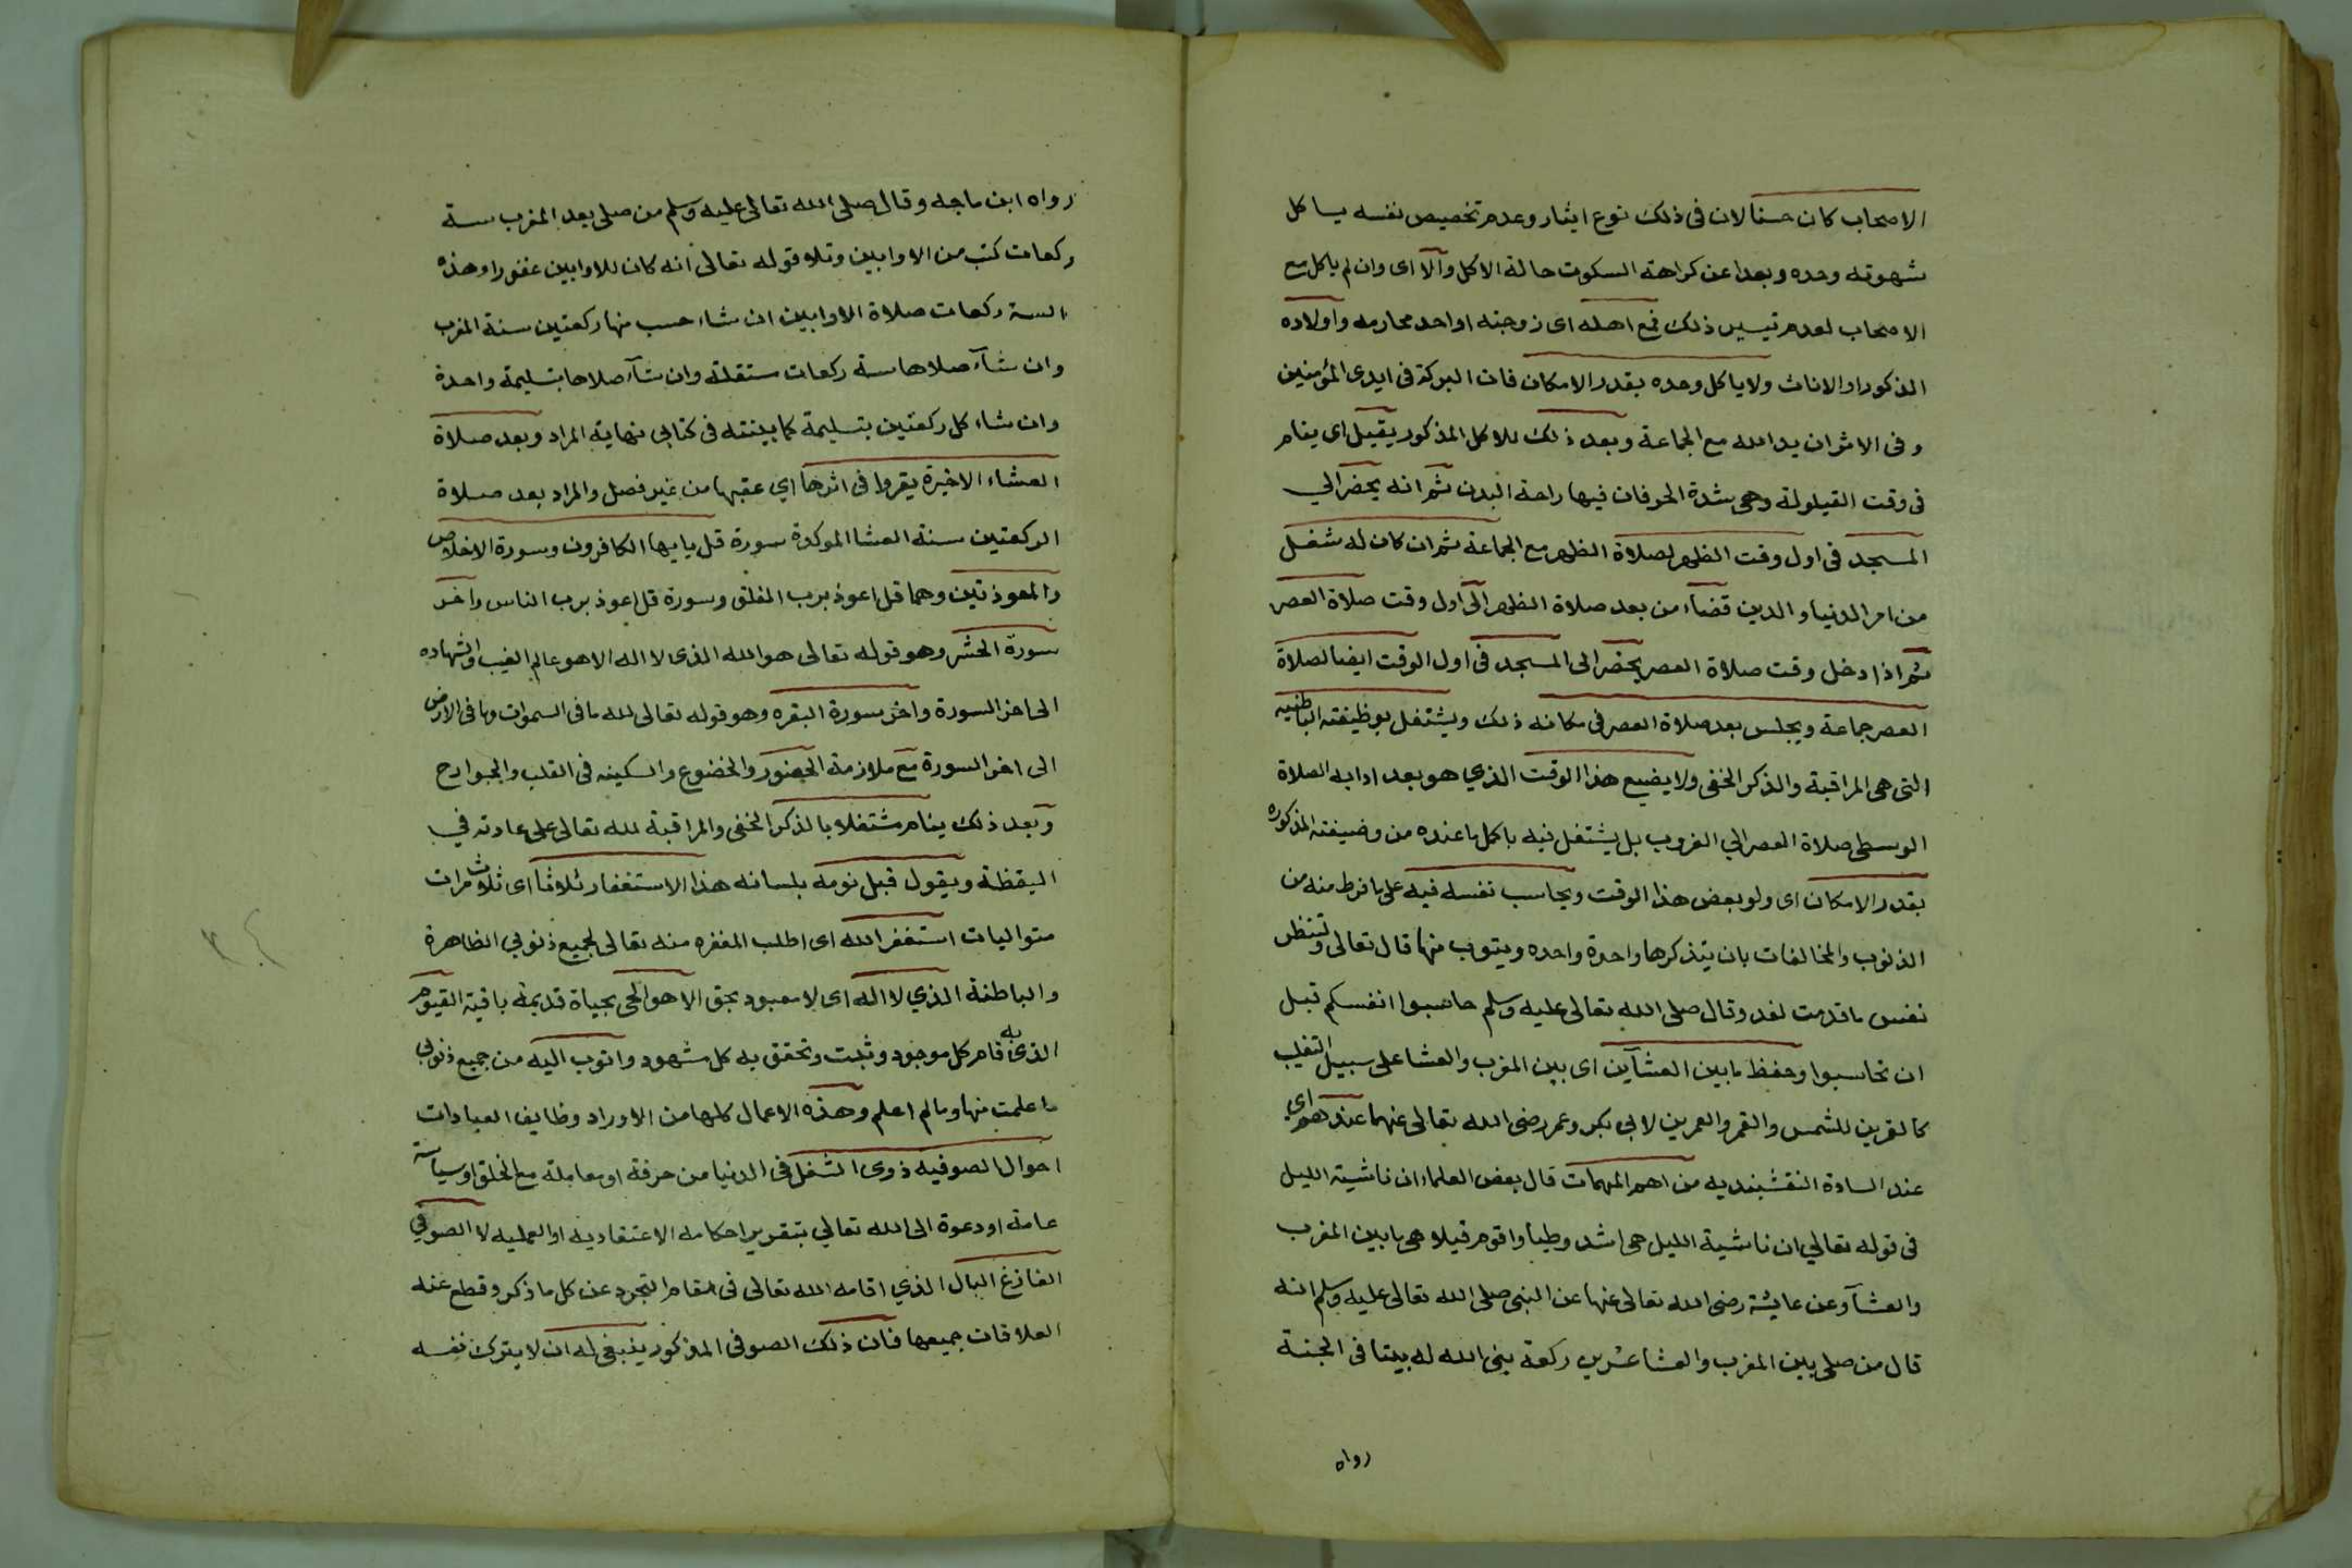 الاصحاب كان حسنا لان فى ذلك نوع ايثار وعدم تخصيص نفسه يـاكل
شهوته وحده وبعدا عن كراهة السكوت حالة الاكل والا اى وان لم ياكل مع
الاصحاب لعدم تيسير ذلك فمع اهله اى زوجته او احد محارمه واولاده
الذكور او الاناث ولا ياكل وحده بقدر الامكان فان البركة فى ايدى المؤمنين
وفى الاثر ان يد الله مع الجماعة وبعد ذلك للاكل المذكور يقيل اى ينام
فى وقت القيلولة وهى شدة الحر فان فيها راحة البدن ثم انه يحضر الي
المسجد فى اول وقت الظهر لصلاة الظهر مع الجماعة ثم ان كان له شغل
من امر الدنيا و الدين قضاء من بعد صلاة الظهر الى اول وقت صلاة العصر
ثم اذا دخل وقت صلاة العصر يحضر الى المسجد فى اول الوقت ايضا لصلاة
العصر جماعة ويجلس بعد صلاة العصر فى مكانه ذلك ويشتغل بوظيفته الباطنيه
التى هى المراقبة والذكر الخفى ولا يضيع هذا الوقت الذي هو بعد ادايه الصلاة
الوسطى صلاة العصر الي الغروب بل يشتغل فيه باكمل ما عنده من وضيفته المذكوره
بقدر الامكان اى ولو بعض هذا الوقت ويحاسب نفسه فيه على ما فرط منه من
الذنوب والمخالفات بان يتذكرها واحدة واحده ويتوب منها قال تعالى ولتنظر
نفس ما قدمت لغد وقال صلى الله تعالى عليه وسلم حاسبوا انفسكم قبل
ان تحاسبوا وحفظ ما بين العشآين اى بين المغرب والعشا على سبيل التغليب
كالقمرين للشمس والقمر والعمرين لابى بكر وعمر رضى الله تعالى عنهما عندهم اي
عند السادة النقشبنديه من اهم المهمات قال بعض العلماء ان ناشية الليل
فى قوله تعالي ان ناشية الليل هى اشد وطيا واقوم قيلا هى ما بين المغرب
والعشآ وعن عايشة رضى الله تعالى عنها عن النبى صلى الله تعالى عليه وسلم انه
قال من صلى بين المغرب والعشا عشرين ركعة بنى الله له بيتا فى الجنة
رواه
رواه ابن ماجه وقال صلى الله تعالى عليه وسلم من صلى بعد المغرب ستة
ركعات كتب من الاوابين وتلا قوله تعالى انه كان للاوابين غفورا وهذه
الستة ركعات صلاة الاوابين ان شاء حسب منها ركعتين سنة المغرب
وان شآء صلاها ستة ركعات مستقلة وان شآء صلاها بتسليمة واحدة
وان شاء كل ركعتين بتسليمة كما بينته فى كتابى نهاية المراد وبعد صلاة
العشاء الاخيرة يقروا فى اثرها اي عقبها من غير فصل والمراد بعد صلاة
الركعتين سنة العشا الموكدة سورة قل يا يها الكافرون وسورة الاخلاص
والمعوذتين وهما قل اعوذ برب الفلق وسورة قل اعوذ برب الناس واخر
سورة الحشر وهو قوله تعالى هو الله الذى لا اله الا هو عالم الغيب والشهاده
الى اخر السورة واخر سورة البقره وهو قوله تعالى لله ما فى السموات وما فى الارض
الى اخر السورة مع ملازمة الحضور والخضوع والسكينه فى القلب والجوارح
وبعد ذلك ينام مشتغلا بالذكر الخفى والمراقبة لله تعالى على عادته في
اليقظة ويقول قبل نومه بلسانه هذا الاستغفار ثلاثا اى ثلاث مرات
متواليات استغفر الله اى اطلب المغفره منه تعالى لجميع ذنوبي الظاهرة
والباطنة الذي لا اله اى لا معبود بحق الا هو الحى بحياة قديمة باقية القيوم
الذى به قام كل موجود وثبت وتحقق به كل مشهود واتوب اليه من جميع ذنوبى
ما علمت منها وما لم اعلم وهذه الاعمال كلها من الاوراد وظايف العبادات
احوال الصوفيه ذوى الشغل فى الدنيا من حرفة او معاملة مع الخلق او سياسة
عامة او دعوة الى الله تعالي بتقرير احكامه الاعتقاديه او العمليه لا الصوفي
الفازغ البال الذي اقامه الله تعالى فى مقام التجرد عن كل ما ذكر وقطع عنه
العلاقات جميعها فان ذلك الصوفى المذكور ينبغى له ان لا يترك نفسه